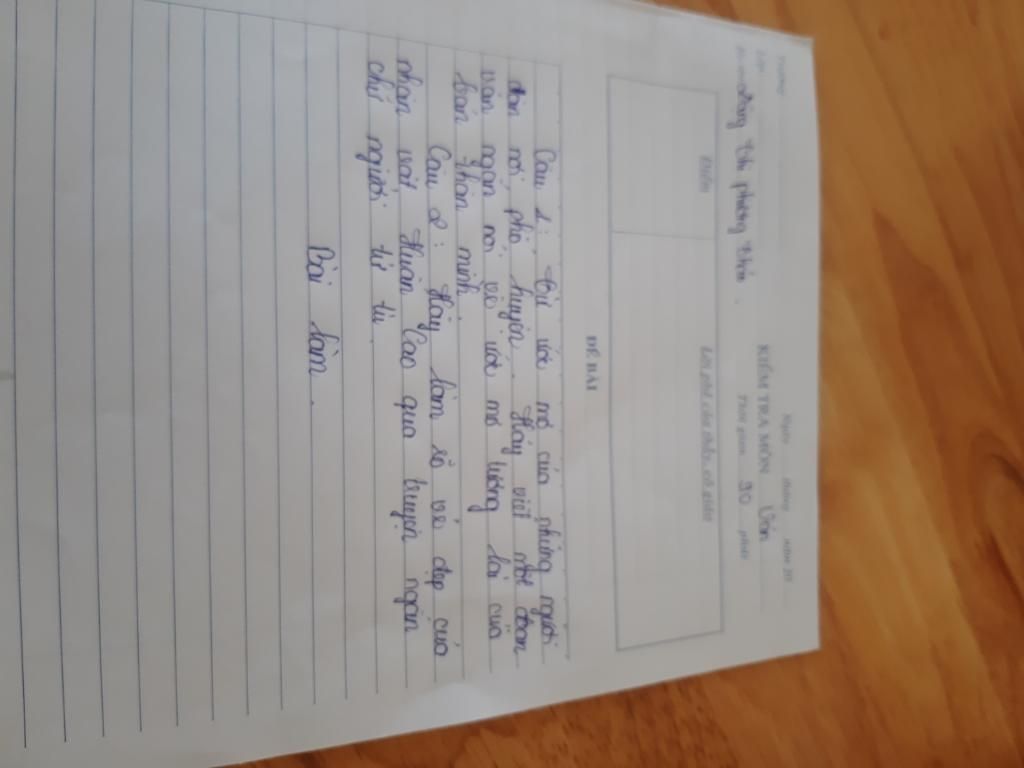 Trường
Lớp
Ngày ...... tháng ...... năm 20
KIỂM TRA MÔN Văn
Thời gian 90 phút
thị phương thảo.
Điểm
Lời phê của thầy, cô giáo
ĐỀ BÀI
Câu 1: Từ ước mơ của những người
dân nơi phố huyện. Hãy viết một đoạn
văn ngắn nói về ước mơ tương lai của
bản thân mình.
Câu 2: Hãy làm rõ vẻ đẹp của
nhân vật Huấn Cao qua truyện ngắn
chữ người tử tù.
Bài làm.